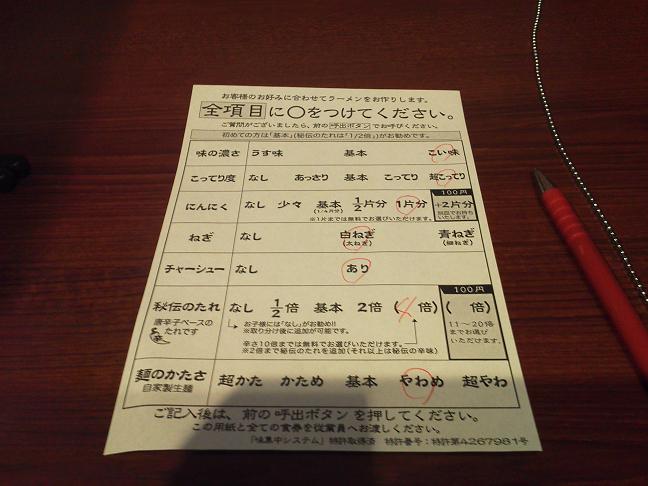 お客様のお好みに合わせてラーメンをお作りします。
全項目に〇をつけてください。
ご質問がございましたら、前の呼出ボタンでお呼びください。
初めての方は「基本」(秘伝のたれは「1/2倍」)がお勧めです。
味の濃さ うす味 基本 こい味
こってり度 なし あっさり 基本 こってり 超こってり
100円
にんにく なし 少々 基本 1/2片分 1片分 +2片分
(1/4片分)
※1片までは無料でお選びいただけます。
ねぎ なし 白ねぎ 青ねぎ
(太ねぎ) (細ねぎ)
チャーシュー なし あり
100円
秘伝のたれ なし 1/2倍 基本 2倍 (4倍) ( 倍)
唐辛子ベースの
たれです
お子様には「なし」がお勧め!!
※取り分け後に追加が可能です。
11〜20倍
までお選び
いただけます。
辛さ10倍までは無料でお選びいただけます。
※2倍まで秘伝のたれを追加(それ以上は秘伝の辛味)
麺のかたさ 超かた かため 基本 やわめ 超やわ
自家製生麺
ご記入後は、前の呼出ボタンを押してください。
この用紙と全ての食券を従業員へお渡しください。
「味集中システム」特許取得済 特許番号:特許第4267981号